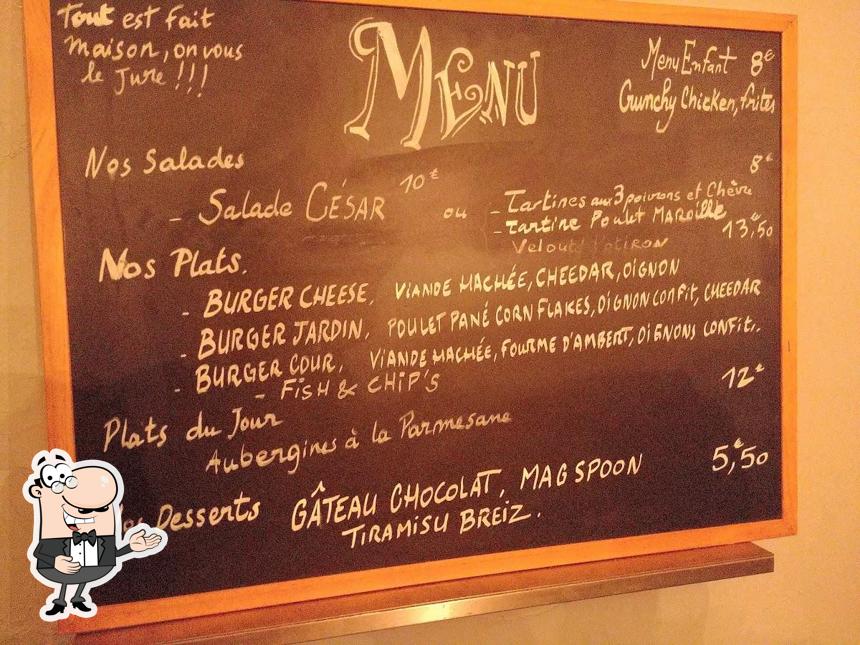 Tout est fait
maison, on vous
le jure !!!
MENU
Menu Enfant 8€
Crunchy Chicken, frites
Nos Salades
8€
- Salade CÉSAR 10€ ou
- Tartines aux 3 poivrons et Chèvre
- Tartine Poulet MAROILLE
13,€50
Nos Plats.
- BURGER CHEESE, VIANDE HACHÉE, CHEEDAR, OIGNON
- BURGER JARDIN, POULET PANÉ CORN FLAKES, OIGNON CONFIT, CHEEDAR
- BURGER COUR, VIANDE HACHÉE, FOURME D'AMBERT, OIGNONS CONFIT.
- FISH & CHIP'S
12€
Plats du Jour
Aubergines à la Parmesane
5,€50
Desserts GÂTEAU CHOCOLAT, MAG SPOON
TIRAMISU BREIZ.